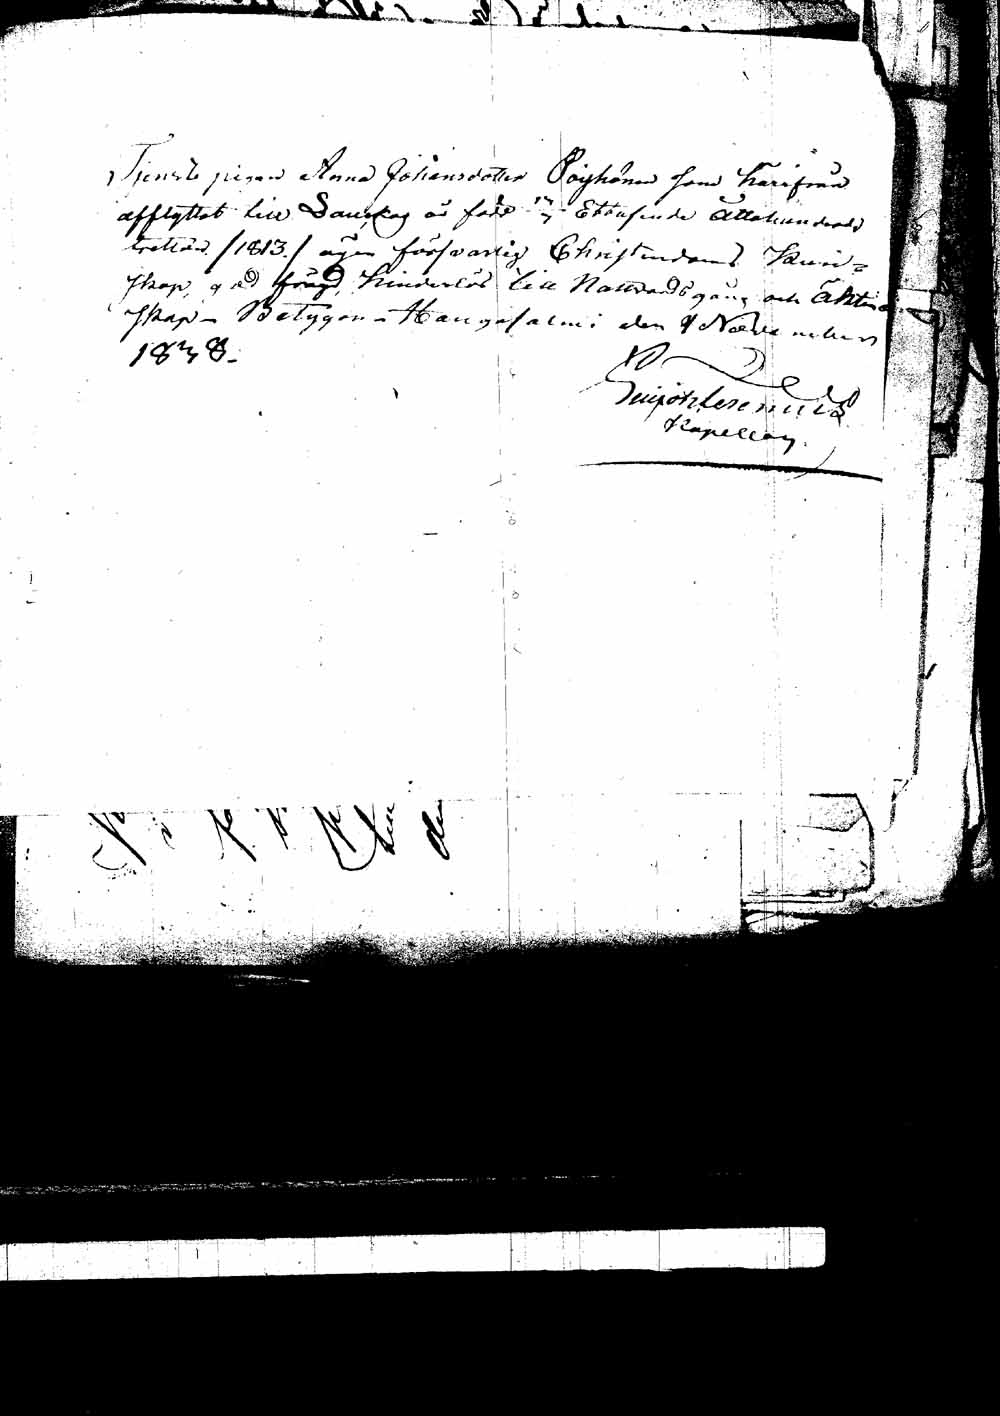 Tjenste pigan Anna Johansdotter Pöyhönen som härifrån
afflyttat till Saukog är född 17/7 Ettusende Åttahundrade
tretton /1813./ äger försvarlig Christendoms kun-
skap, god frägd, hinderlös till Nattvardsgång och Äkten
skap - Betygar - Hangasalmi den 8 November
1838.
Kapellan.